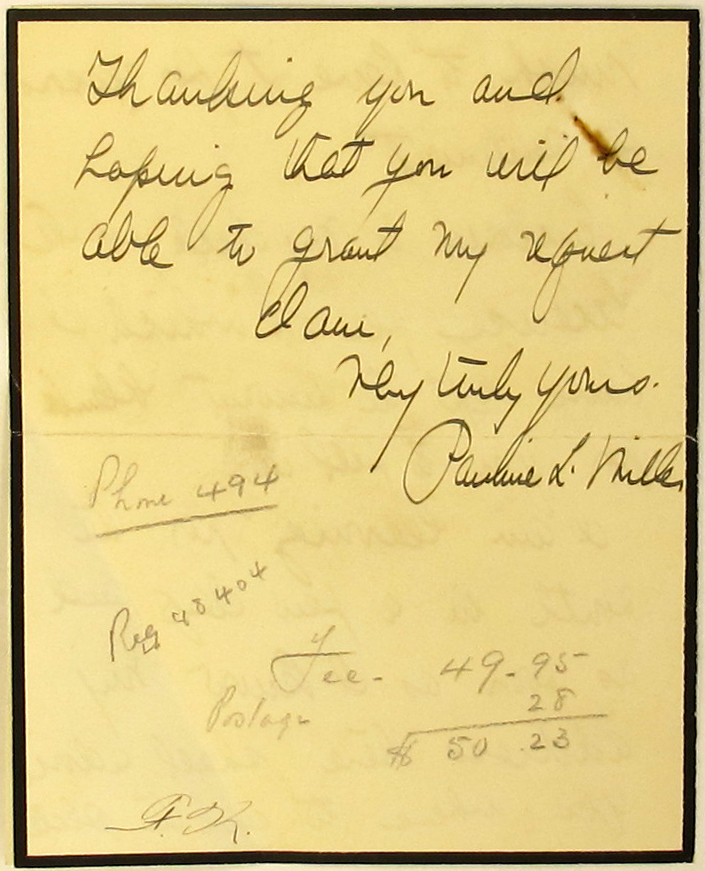 Thanking you and
hoping that you will be
able to grant my request
I am,
Very truly yours.
Pauline L. Miller
Phone 494
Reg 48404
Fee - 49.95
Postage 28
$ 50.23
F.K.